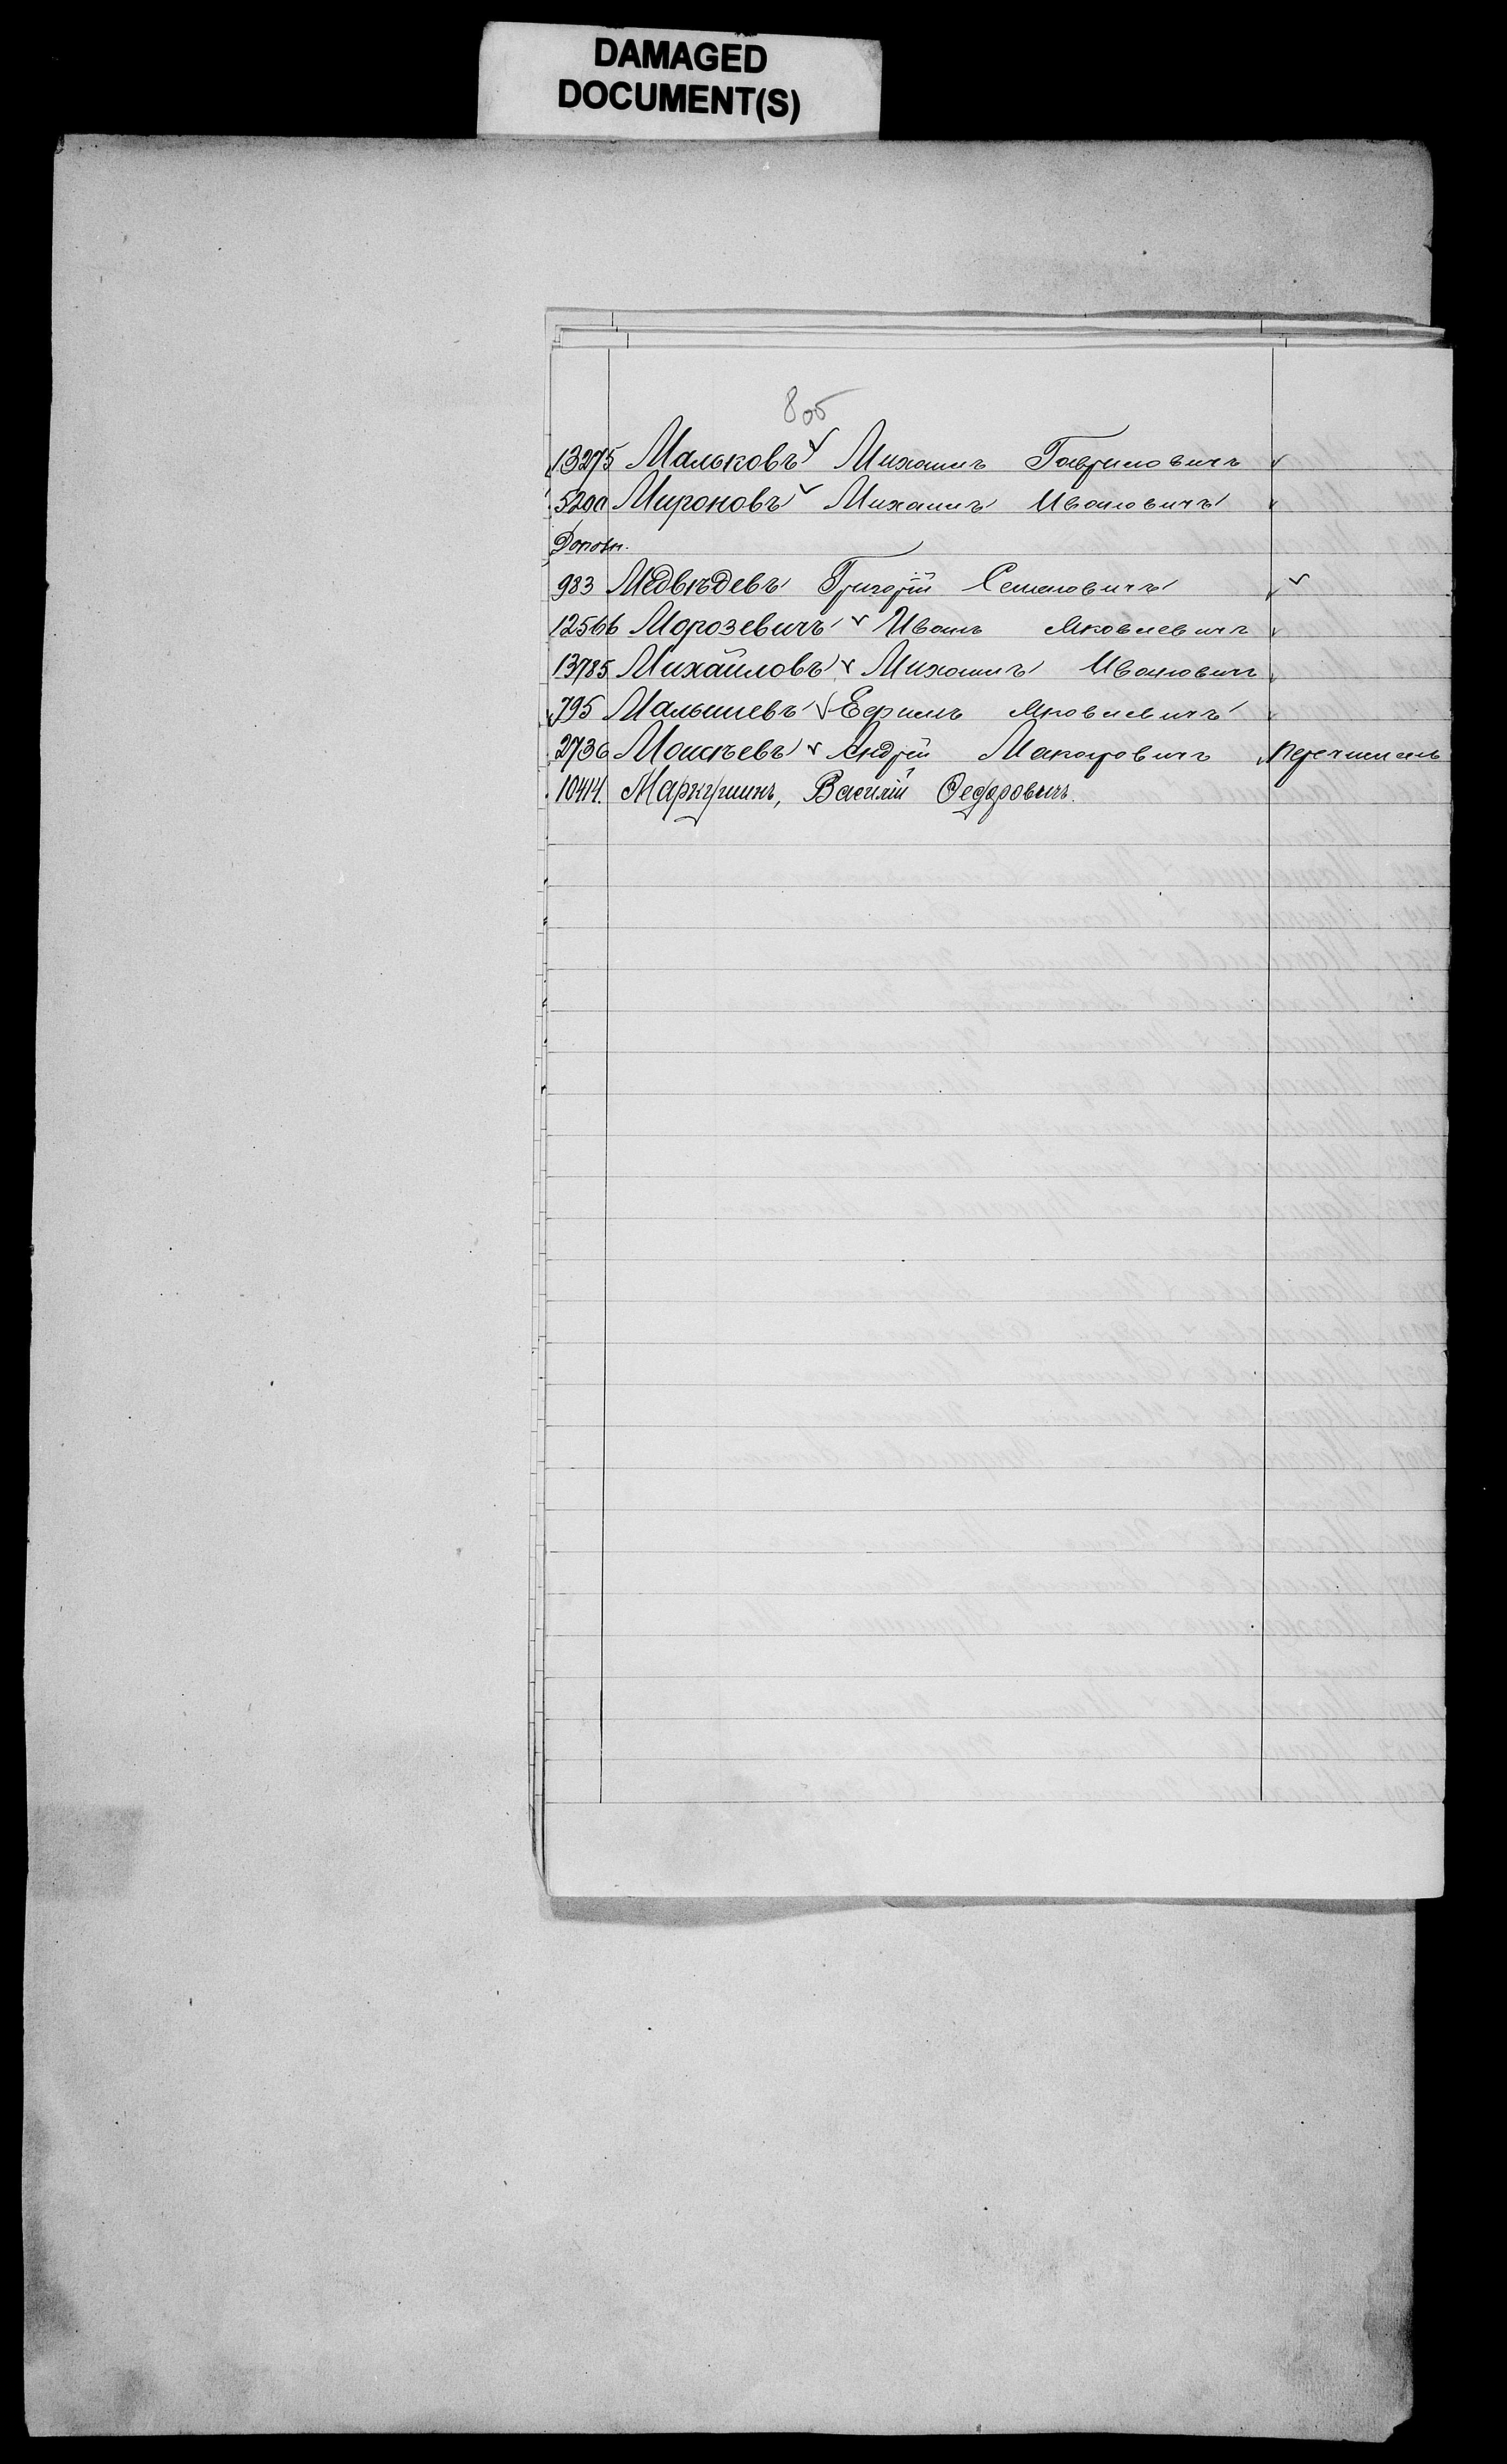 DAMAGED
DOCUMENT(S)
8об
13275 Мальковъ Михаилъ Гавриловичъ
5200 Мироновъ Михаилъ Ивановичъ
Дополн.
983 Медвѣдевъ Григорій Семеновичъ
12566 Морозевичъ Иванъ Яковлевичъ
13785 Михайловъ Михаилъ Ивановичъ
795 Малышевъ Ефимъ Яковлевичъ
2736 Моисѣевъ Андрей Макаровичъ перечисленъ
10414. Маркушинъ, Василій Ѳедоровичъ.